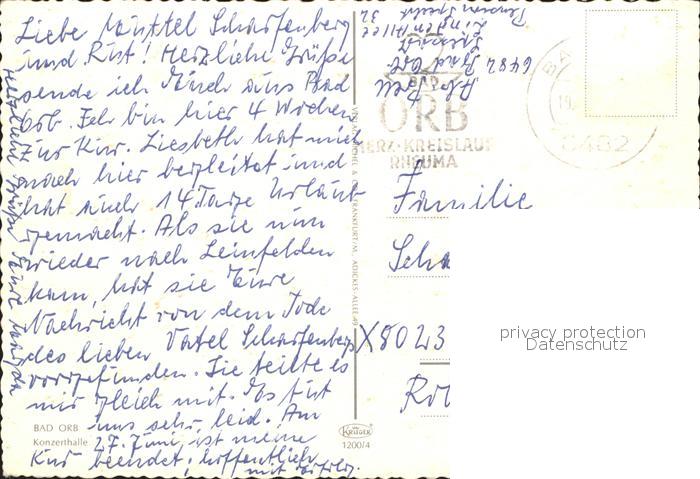 Liebe Muttel Scharfenberg
und Rüst! Herzliche Grüße
sende ich Euch aus Bad
Orb. Ich bin hier 4 Wochen
zur Kur. Liesbeth hat mich
nach hier begleitet und
hat auch 14 Tage Urlaub
gemacht. Als sie nun
wieder nach Leinfelden
kam, hat sie Eure
Nachricht von dem Tode
des lieben Vatel Scharfenberg
vorgefunden. Sie teilte es
mir gleich mit. Es tut
uns sehr leid. Am
27. Juni, ist meine
Kur beendet; hoffentlich
mit Erfolg.
BAD ORB
Konzerthalle
6482 Bad Orb
BAD
ORB
HERZ·KREISLAUF
RHEUMA
6482
Familie
Scha
X8023
Ro
KRÜGER
1200/4
privacy protection
Datenschutz